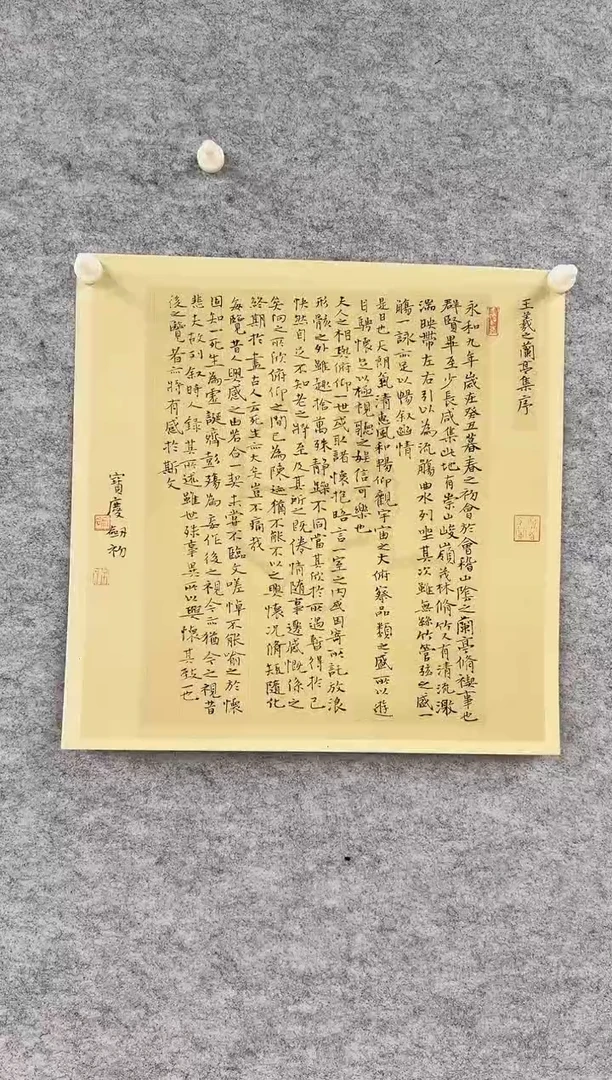 王羲之蘭亭集序
永和九年歲在癸丑暮春之初會於會稽山陰之蘭亭脩禊事也
群賢畢至少長咸集此地有崇山峻嶺茂林脩竹又有清流激
湍映帶左右引以為流觴曲水列坐其次雖無絲竹管弦之盛一
觴一詠亦足以暢敘幽情
是日也天朗氣清惠風和暢仰觀宇宙之大俯察品類之盛所以遊
目騁懷足以極視聽之娛信可樂也
夫人之相與俯仰一世或取諸懷抱晤言一室之內或因寄所託放浪
形骸之外雖趣捨萬殊靜躁不同當其欣於所遇暫得於己
快然自足不知老之將至及其所之既倦情隨事遷感慨係之
矣向之所欣俯仰之間已為陳迹猶不能不以之興懷況脩短隨化
終期於盡古人云死生亦大矣豈不痛哉
每覽昔人興感之由若合一契未嘗不臨文嗟悼不能喻之於懷
固知一死生為虛誕齊彭殤為妄作後之視今亦猶今之視昔
悲夫故列敘時人錄其所述雖世殊事異所以興懷其致一也
後之覽者亦將有感於斯文
寶慶
初